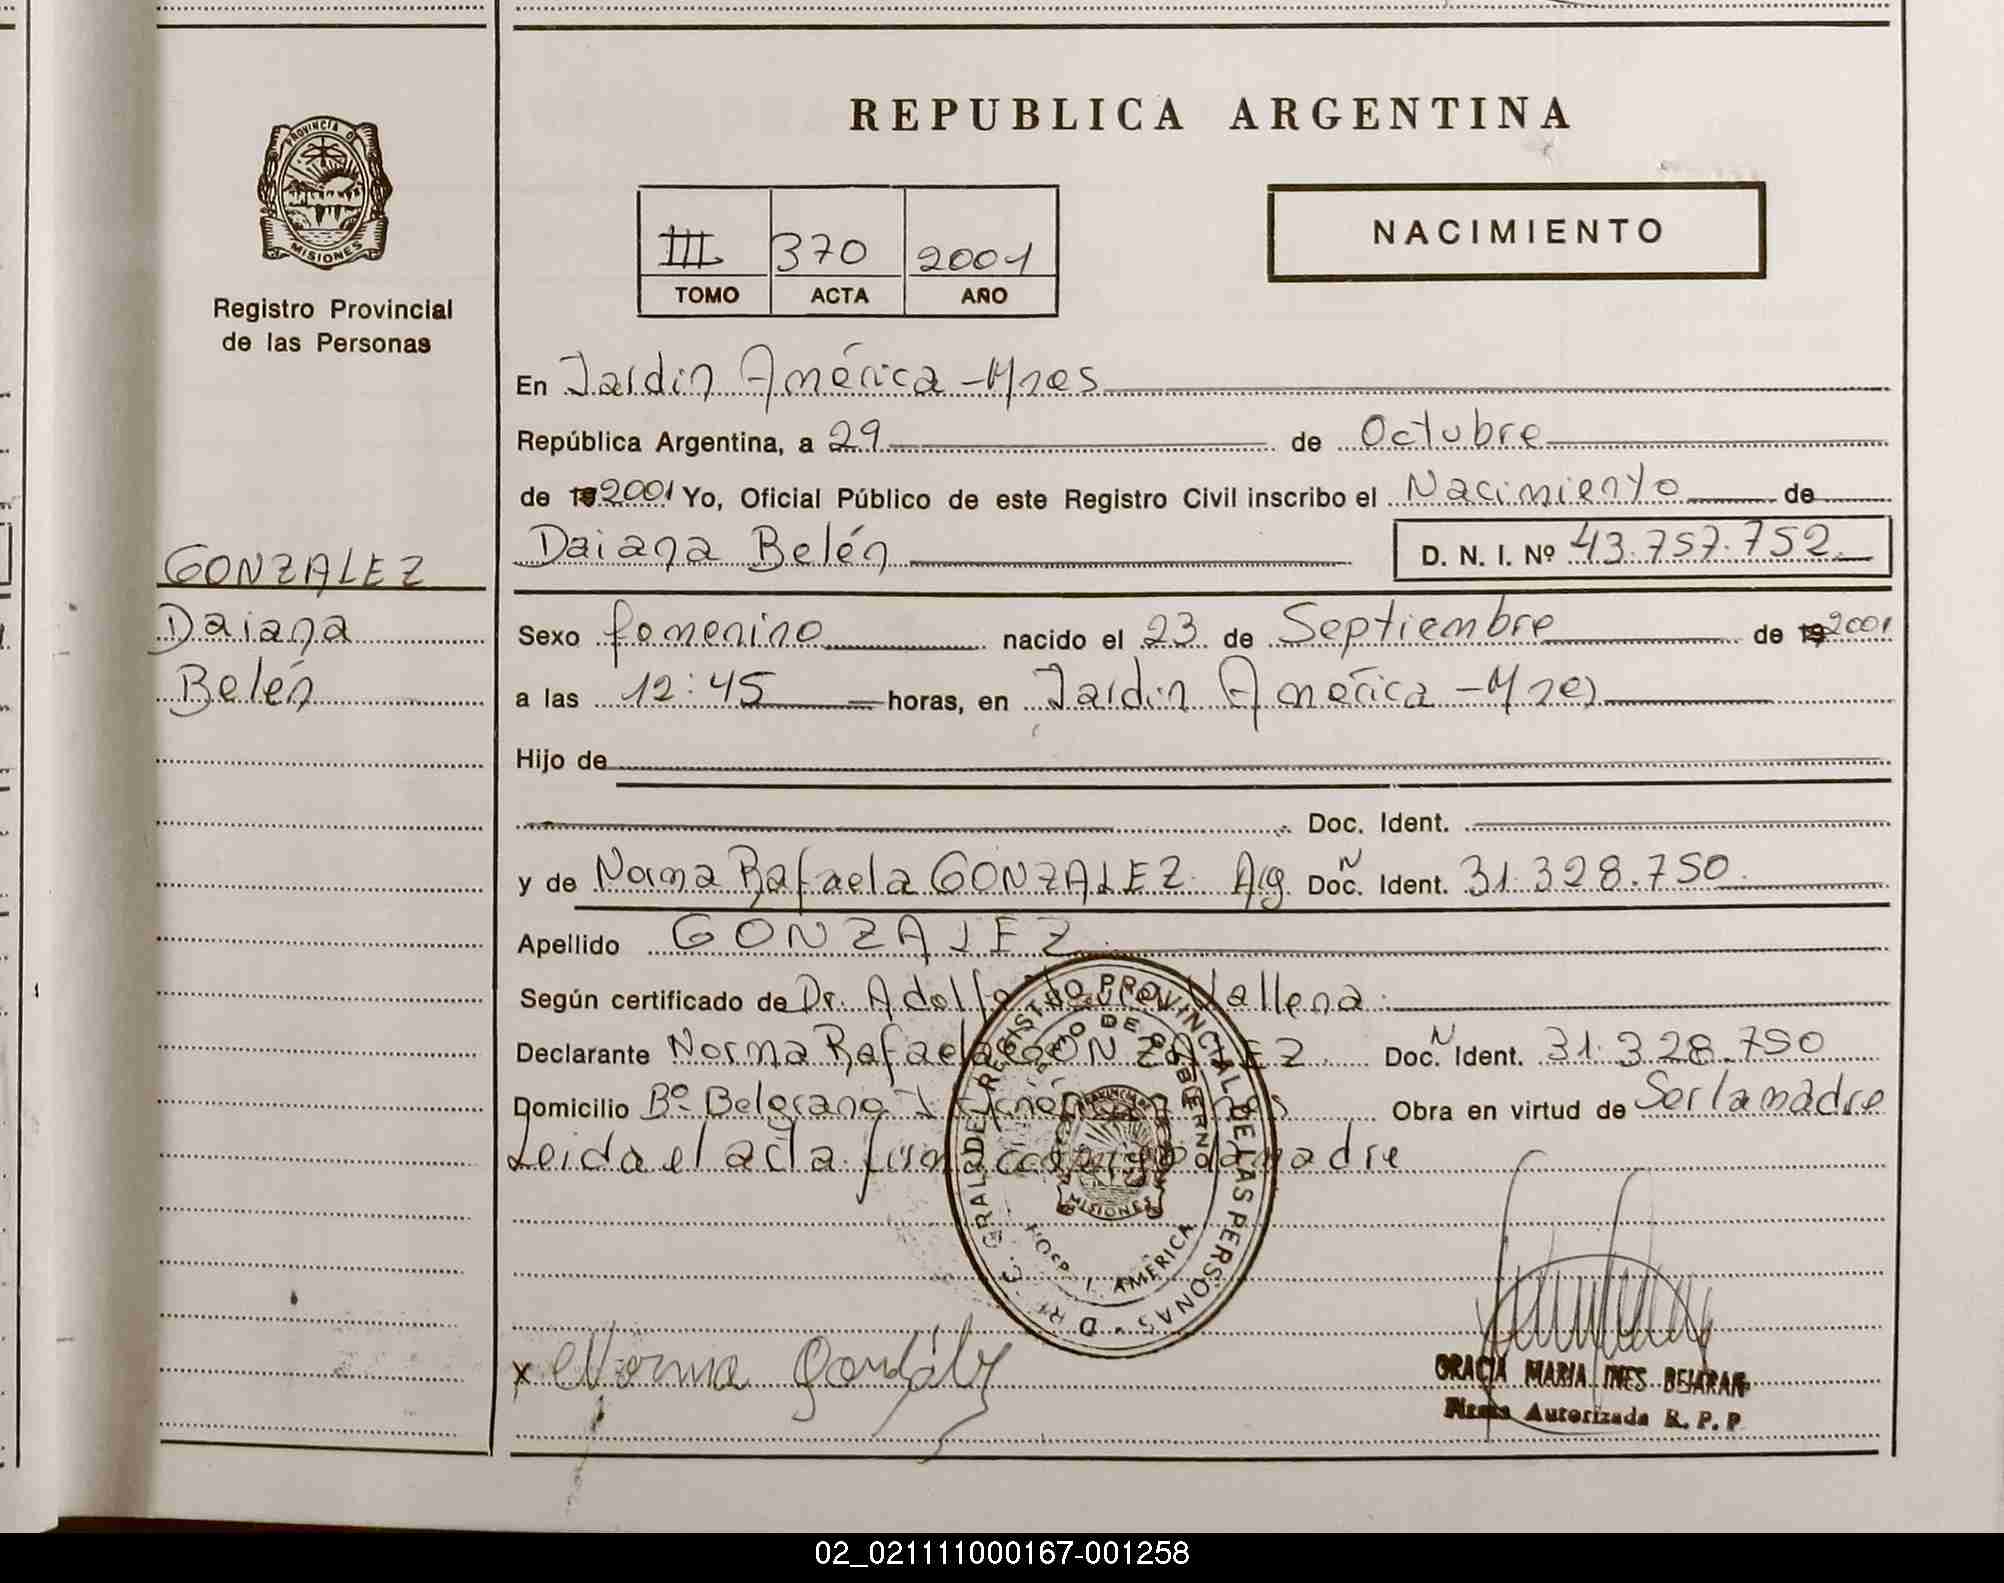 REPUBLICA ARGENTINA
PROVINCIA DE
MISIONES
Registro Provincial
de las Personas
III 370 2001
TOMO ACTA AÑO
NACIMIENTO
En Jardín América - Mnes
República Argentina, a 29 de Octubre
de 19 2001 Yo, Oficial Público de este Registro Civil inscribo el Nacimiento de
Daiana Belén D. N. I. Nº 43.757.752
GONZALEZ
Daiana
Belén
Sexo femenino nacido el 23 de Septiembre de 19 2001
a las 12:45 horas, en Jardín América - Mnes
Hijo de
Doc. Ident.
y de Norma Rafaela GONZALEZ Arg. Doc. N Ident. 31.328.750
Apellido GONZALEZ
Según certificado de Dr. Adolfo Vallena
Declarante Norma Rafaela GONZALEZ Doc. N Ident. 31.328.750
Domicilio Bº Belgrano J. América Mnes Obra en virtud de Ser la madre
Leida el acta firma conmigo la madre
REGISTRO PROVINCIAL DE LAS PERSONAS
DE GOBIERNO
MISIONES
AMERICA
x Norma González
GRACIA MARIA INES BEJARANO
Firma Autorizada R. P. P.
02_021111000167-001258